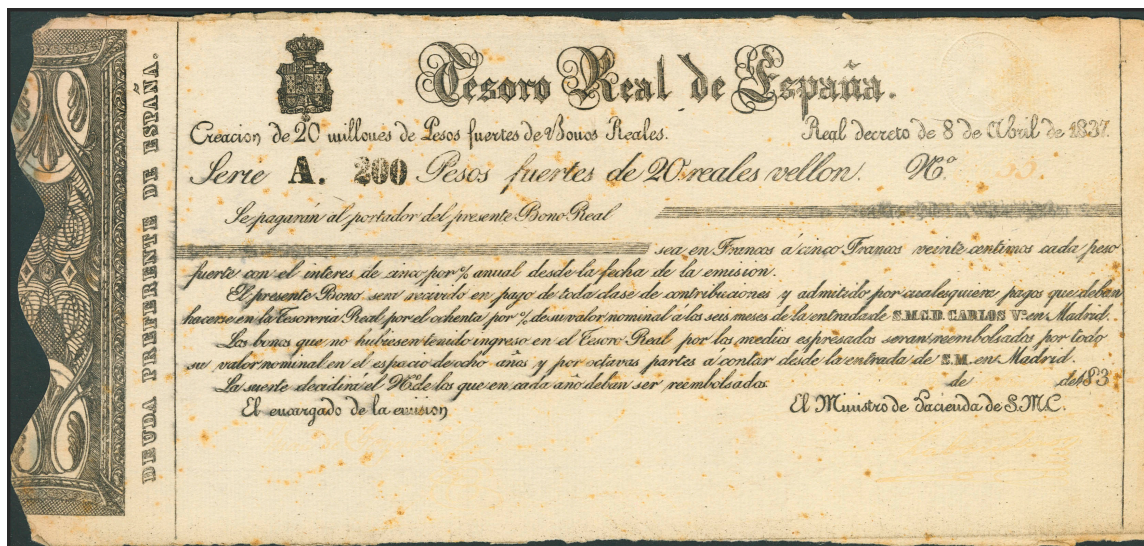 DEUDA PREFERENTE DE ESPAÑA.
Tesoro Real de España.
Creacion de 20 millones de Pesos fuertes de Bonos Reales. Real decreto de 8 de Abril de 1837.
Serie A. 200 Pesos fuertes de 20 reales vellon. Nº 33.
Se pagarán al portador del presente Bono Real
sea en Francos á cinco Francos veinte centimos cada peso
fuerte con el interes de cinco por % anual desde la fecha de la emision.
El presente Bono sera recivido en pago de toda clase de contribuciones y admitido por cualesquiera pagos que deban
hacerse en la Tesoreria Real por el ochenta por % de su valor nominal a los seis meses de la entrada de S.M.C.D. CARLOS Vº en Madrid.
Los bonos que no hubiesen tenido ingreso en el Tesoro Real por los medios espresados seran reembolsados por todo
su valor nominal en el espacio de ocho años y por octavas partes a contar desde la entrada de S.M. en Madrid.
La suerte decidira el Nº de los que en cada año deban ser reembolsados. de de 183
El encargado de la emision El Ministro de Hacienda de S.M.C.